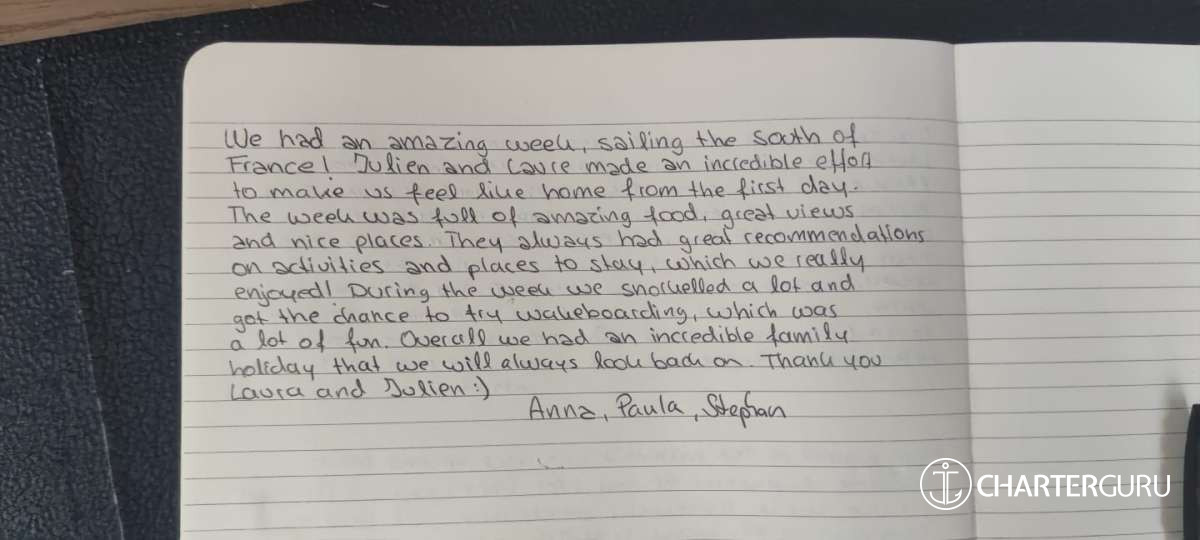 We had an amazing week, sailing the south of
France! Julien and Laure made an incredible effort
to make us feel like home from the first day.
The week was full of amazing food, great views
and nice places. They always had great recommendations
on activities and places to stay, which we really
enjoyed! During the week we snorkelled a lot and
got the chance to try wakeboarding, which was
a lot of fun. Overall we had an incredible family
holiday that we will always look back on. Thank you
Laura and Julien :)
Anna, Paula, Stephan
CHARTERGURU